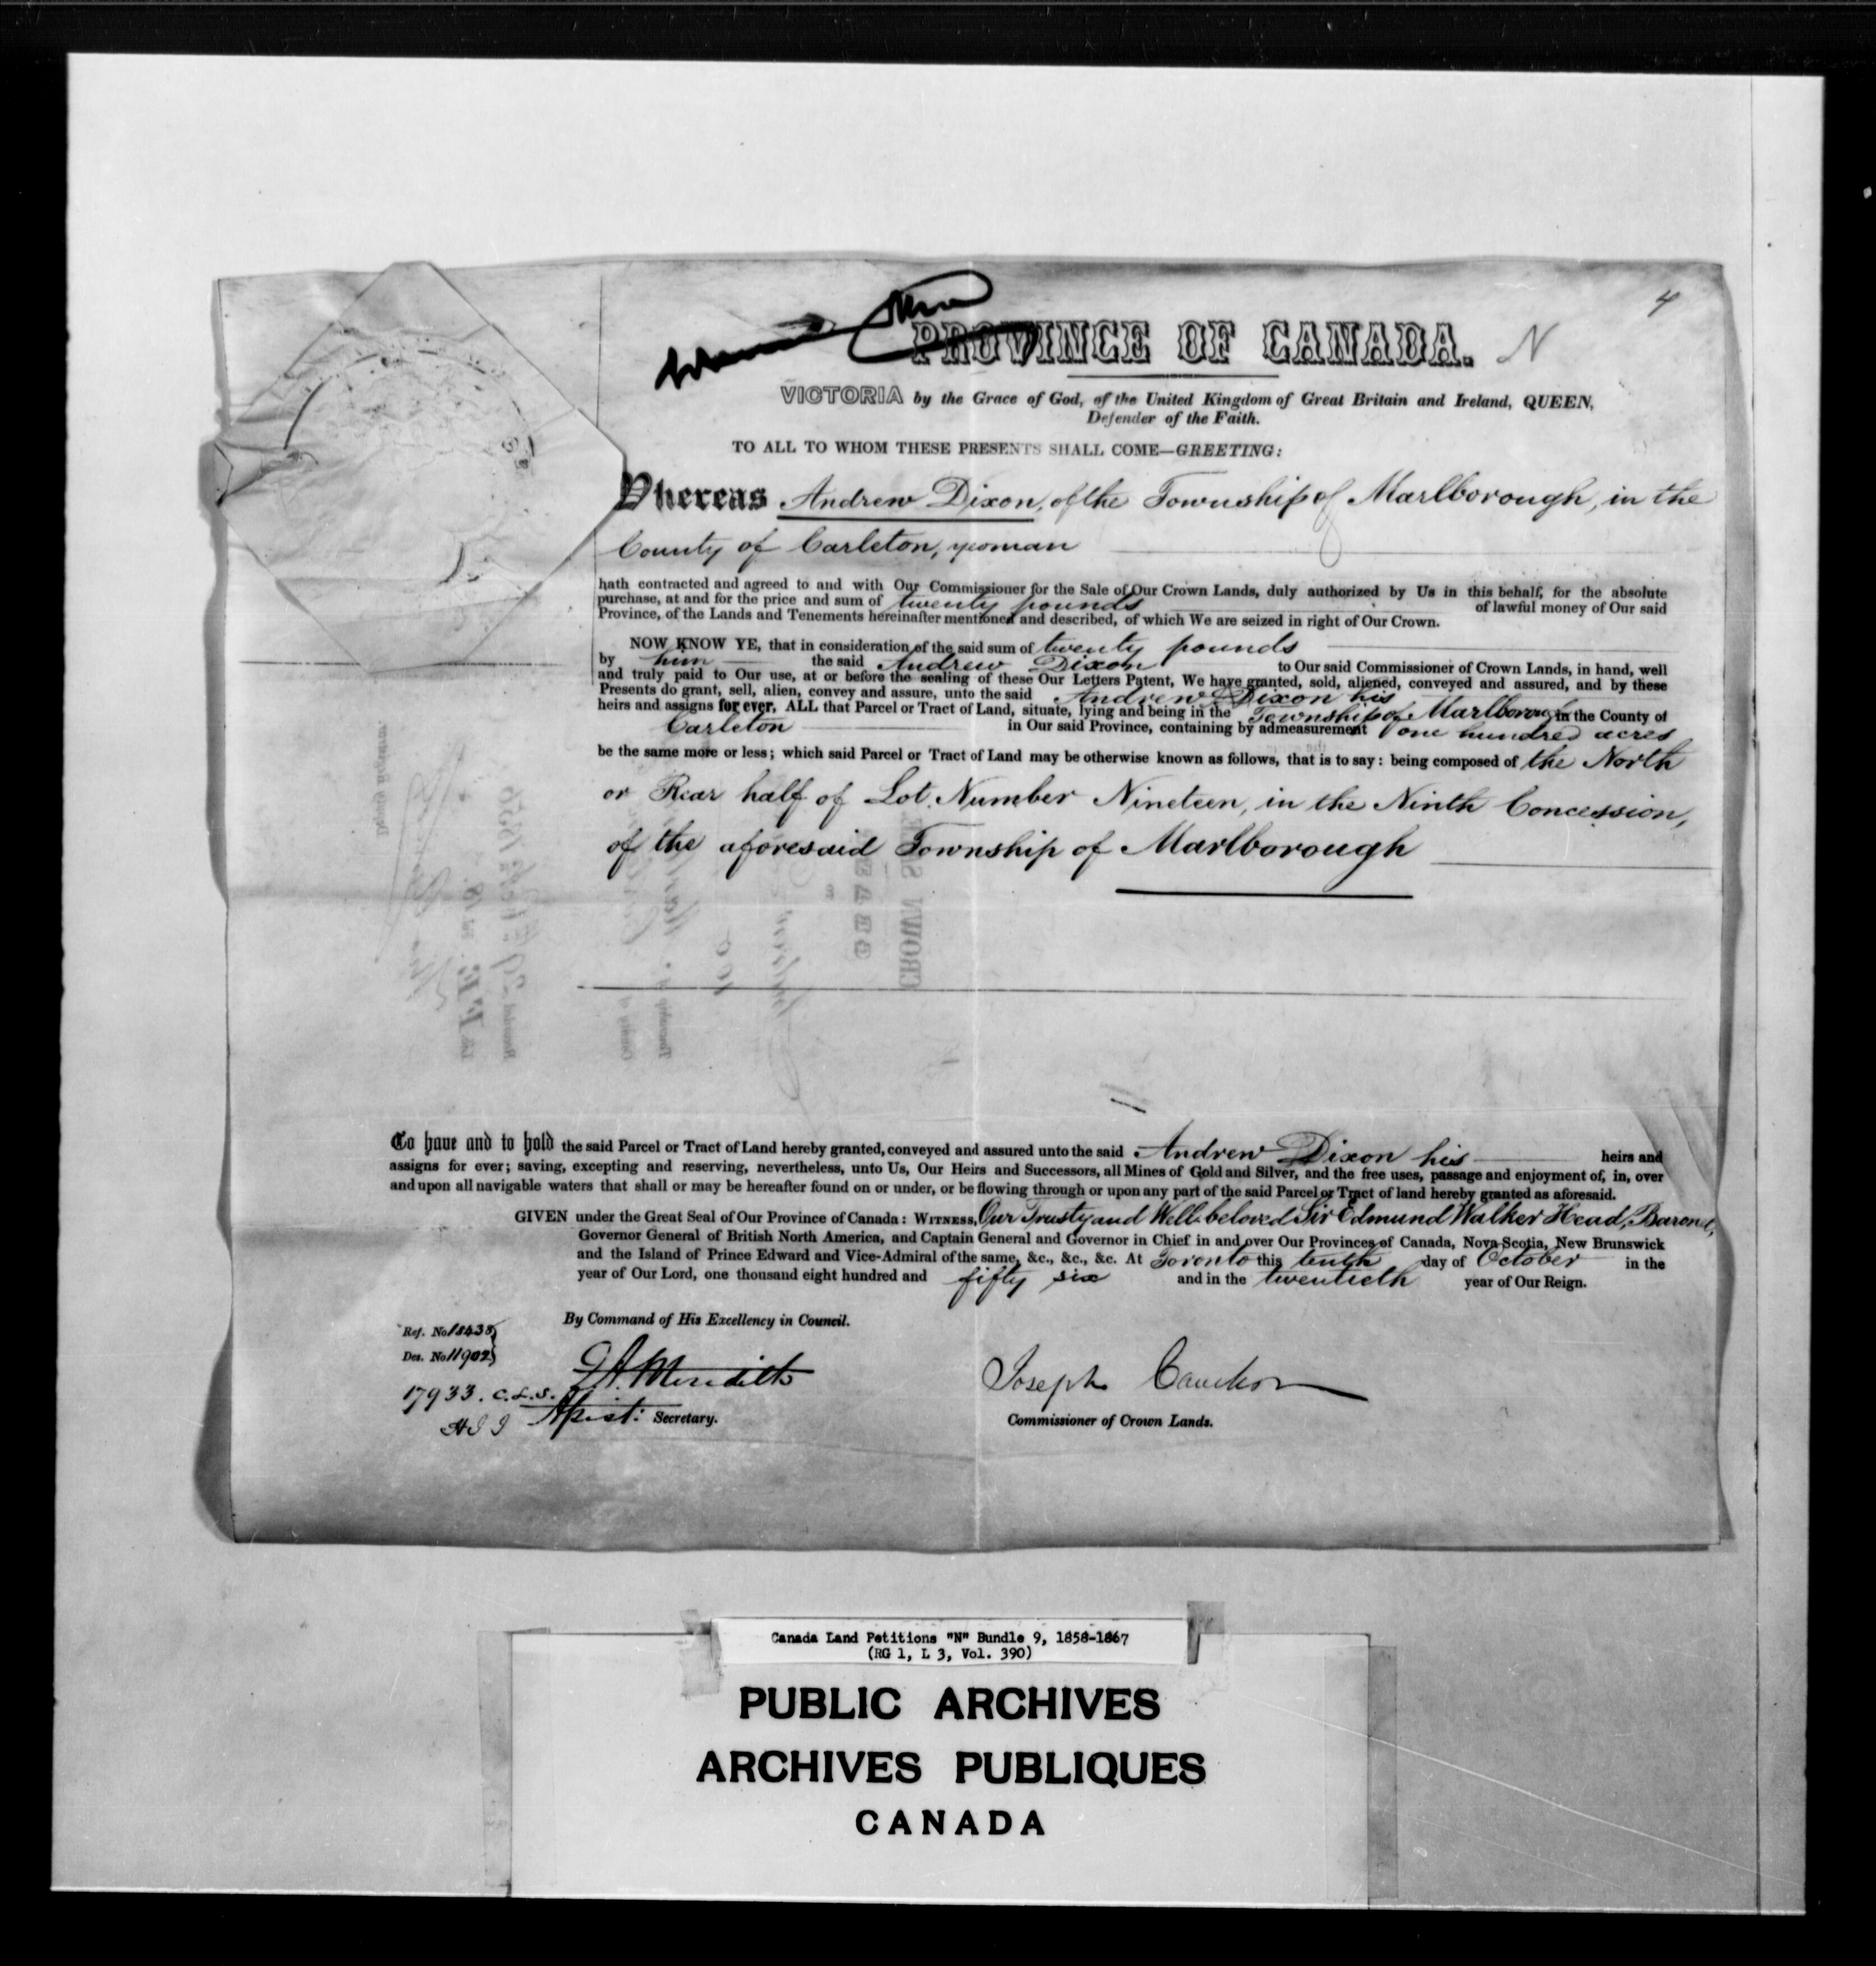 4
PROVINCE OF CANADA. N
VICTORIA by the Grace of God, of the United Kingdom of Great Britain and Ireland, QUEEN,
Defender of the Faith.
TO ALL TO WHOM THESE PRESENTS SHALL COME—GREETING:
Whereas Andrew Dixon, of the Township of Marlborough, in the
County of Carleton, yeoman
hath contracted and agreed to and with Our Commissioner for the Sale of Our Crown Lands, duly authorized by Us in this behalf, for the absolute
purchase, at and for the price and sum of twenty pounds of lawful money of Our said
Province, of the Lands and Tenements hereinafter mentioned and described, of which We are seized in right of Our Crown.
NOW KNOW YE, that in consideration of the said sum of twenty pounds
by him the said Andrew Dixon to Our said Commissioner of Crown Lands, in hand, well
and truly paid to Our use, at or before the sealing of these Our Letters Patent, We have granted, sold, aliened, conveyed and assured, and by these
Presents do grant, sell, alien, convey and assure, unto the said Andrew Dixon his
heirs and assigns for ever, ALL that Parcel or Tract of Land, situate, lying and being in the Township of Marlborough in the County of
Carleton in Our said Province, containing by admeasurement one hundred acres
be the same more or less; which said Parcel or Tract of Land may be otherwise known as follows, that is to say: being composed of the North
or Rear half of Lot Number Nineteen, in the Ninth Concession,
of the aforesaid Township of Marlborough
To have and to hold the said Parcel or Tract of Land hereby granted, conveyed and assured unto the said Andrew Dixon his heirs and
assigns for ever; saving, excepting and reserving, nevertheless, unto Us, Our Heirs and Successors, all Mines of Gold and Silver, and the free uses, passage and enjoyment of, in, over
and upon all navigable waters that shall or may be hereafter found on or under, or be flowing through or upon any part of the said Parcel or Tract of land hereby granted as aforesaid.
GIVEN under the Great Seal of Our Province of Canada: WITNESS, Our Trusty and Well-beloved Sir Edmund Walker Head, Baronet,
Governor General of British North America, and Captain General and Governor in Chief in and over Our Provinces of Canada, Nova Scotia, New Brunswick
and the Island of Prince Edward and Vice-Admiral of the same, &c., &c., &c. At Toronto this tenth day of October in the
year of Our Lord, one thousand eight hundred and fifty six and in the twentieth year of Our Reign.
By Command of His Excellency in Council.
Ref. No.
Des. No. 11902
17933. C.L.S.
Meredith
Assist: Secretary.
Joseph Cauchon
Commissioner of Crown Lands.
Canada Land Petitions "N" Bundle 9, 1858-1867
(RG 1, L 3, Vol. 390)
PUBLIC ARCHIVES
ARCHIVES PUBLIQUES
CANADA